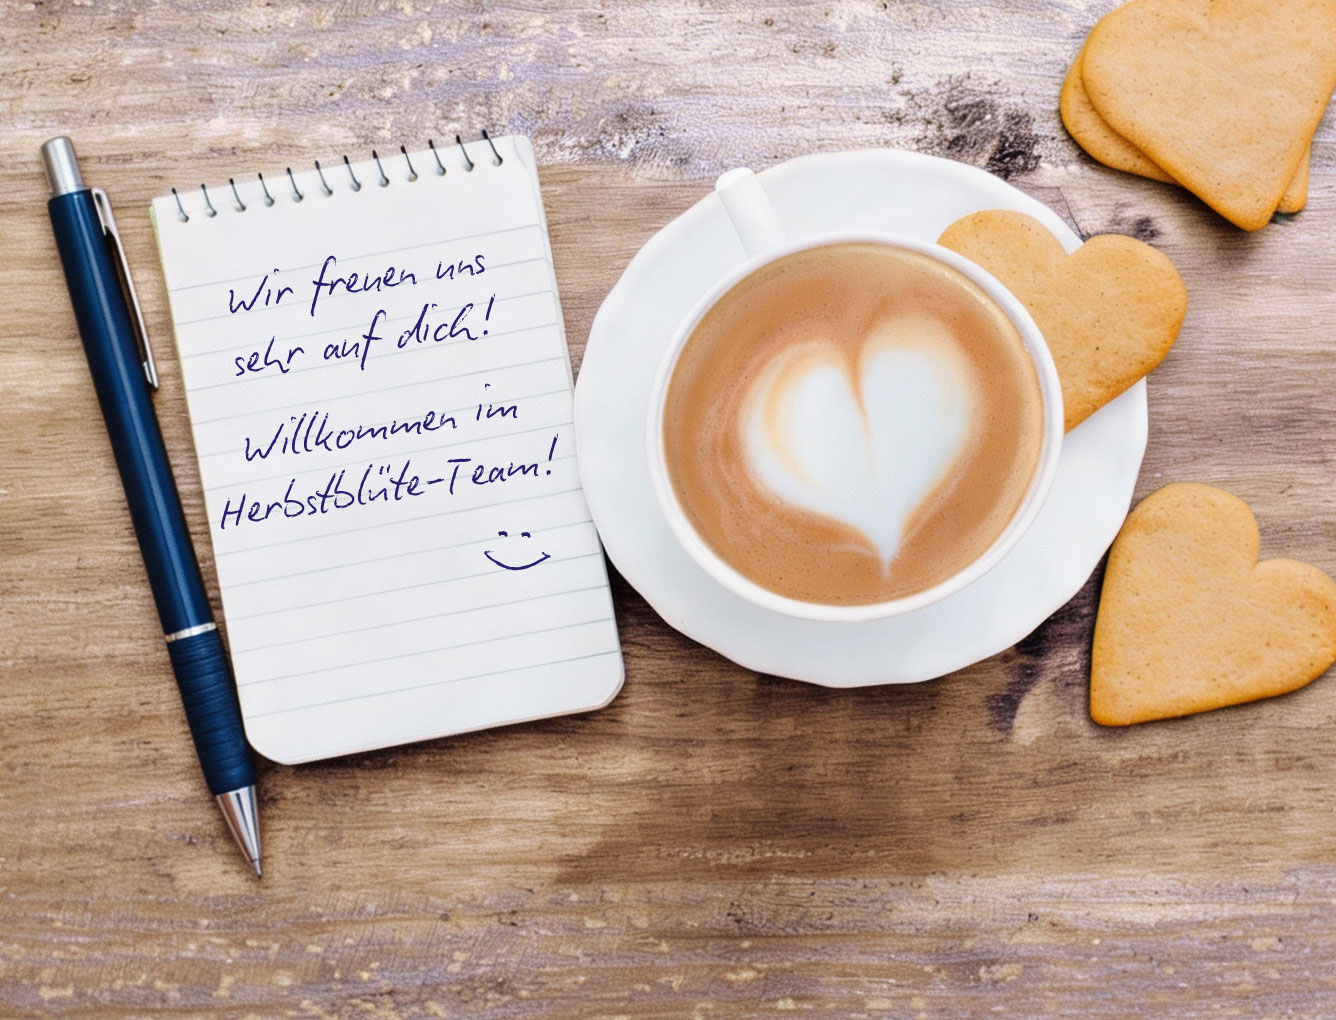 Wir freuen uns
sehr auf dich!
Willkommen im
Herbstblüte-Team!